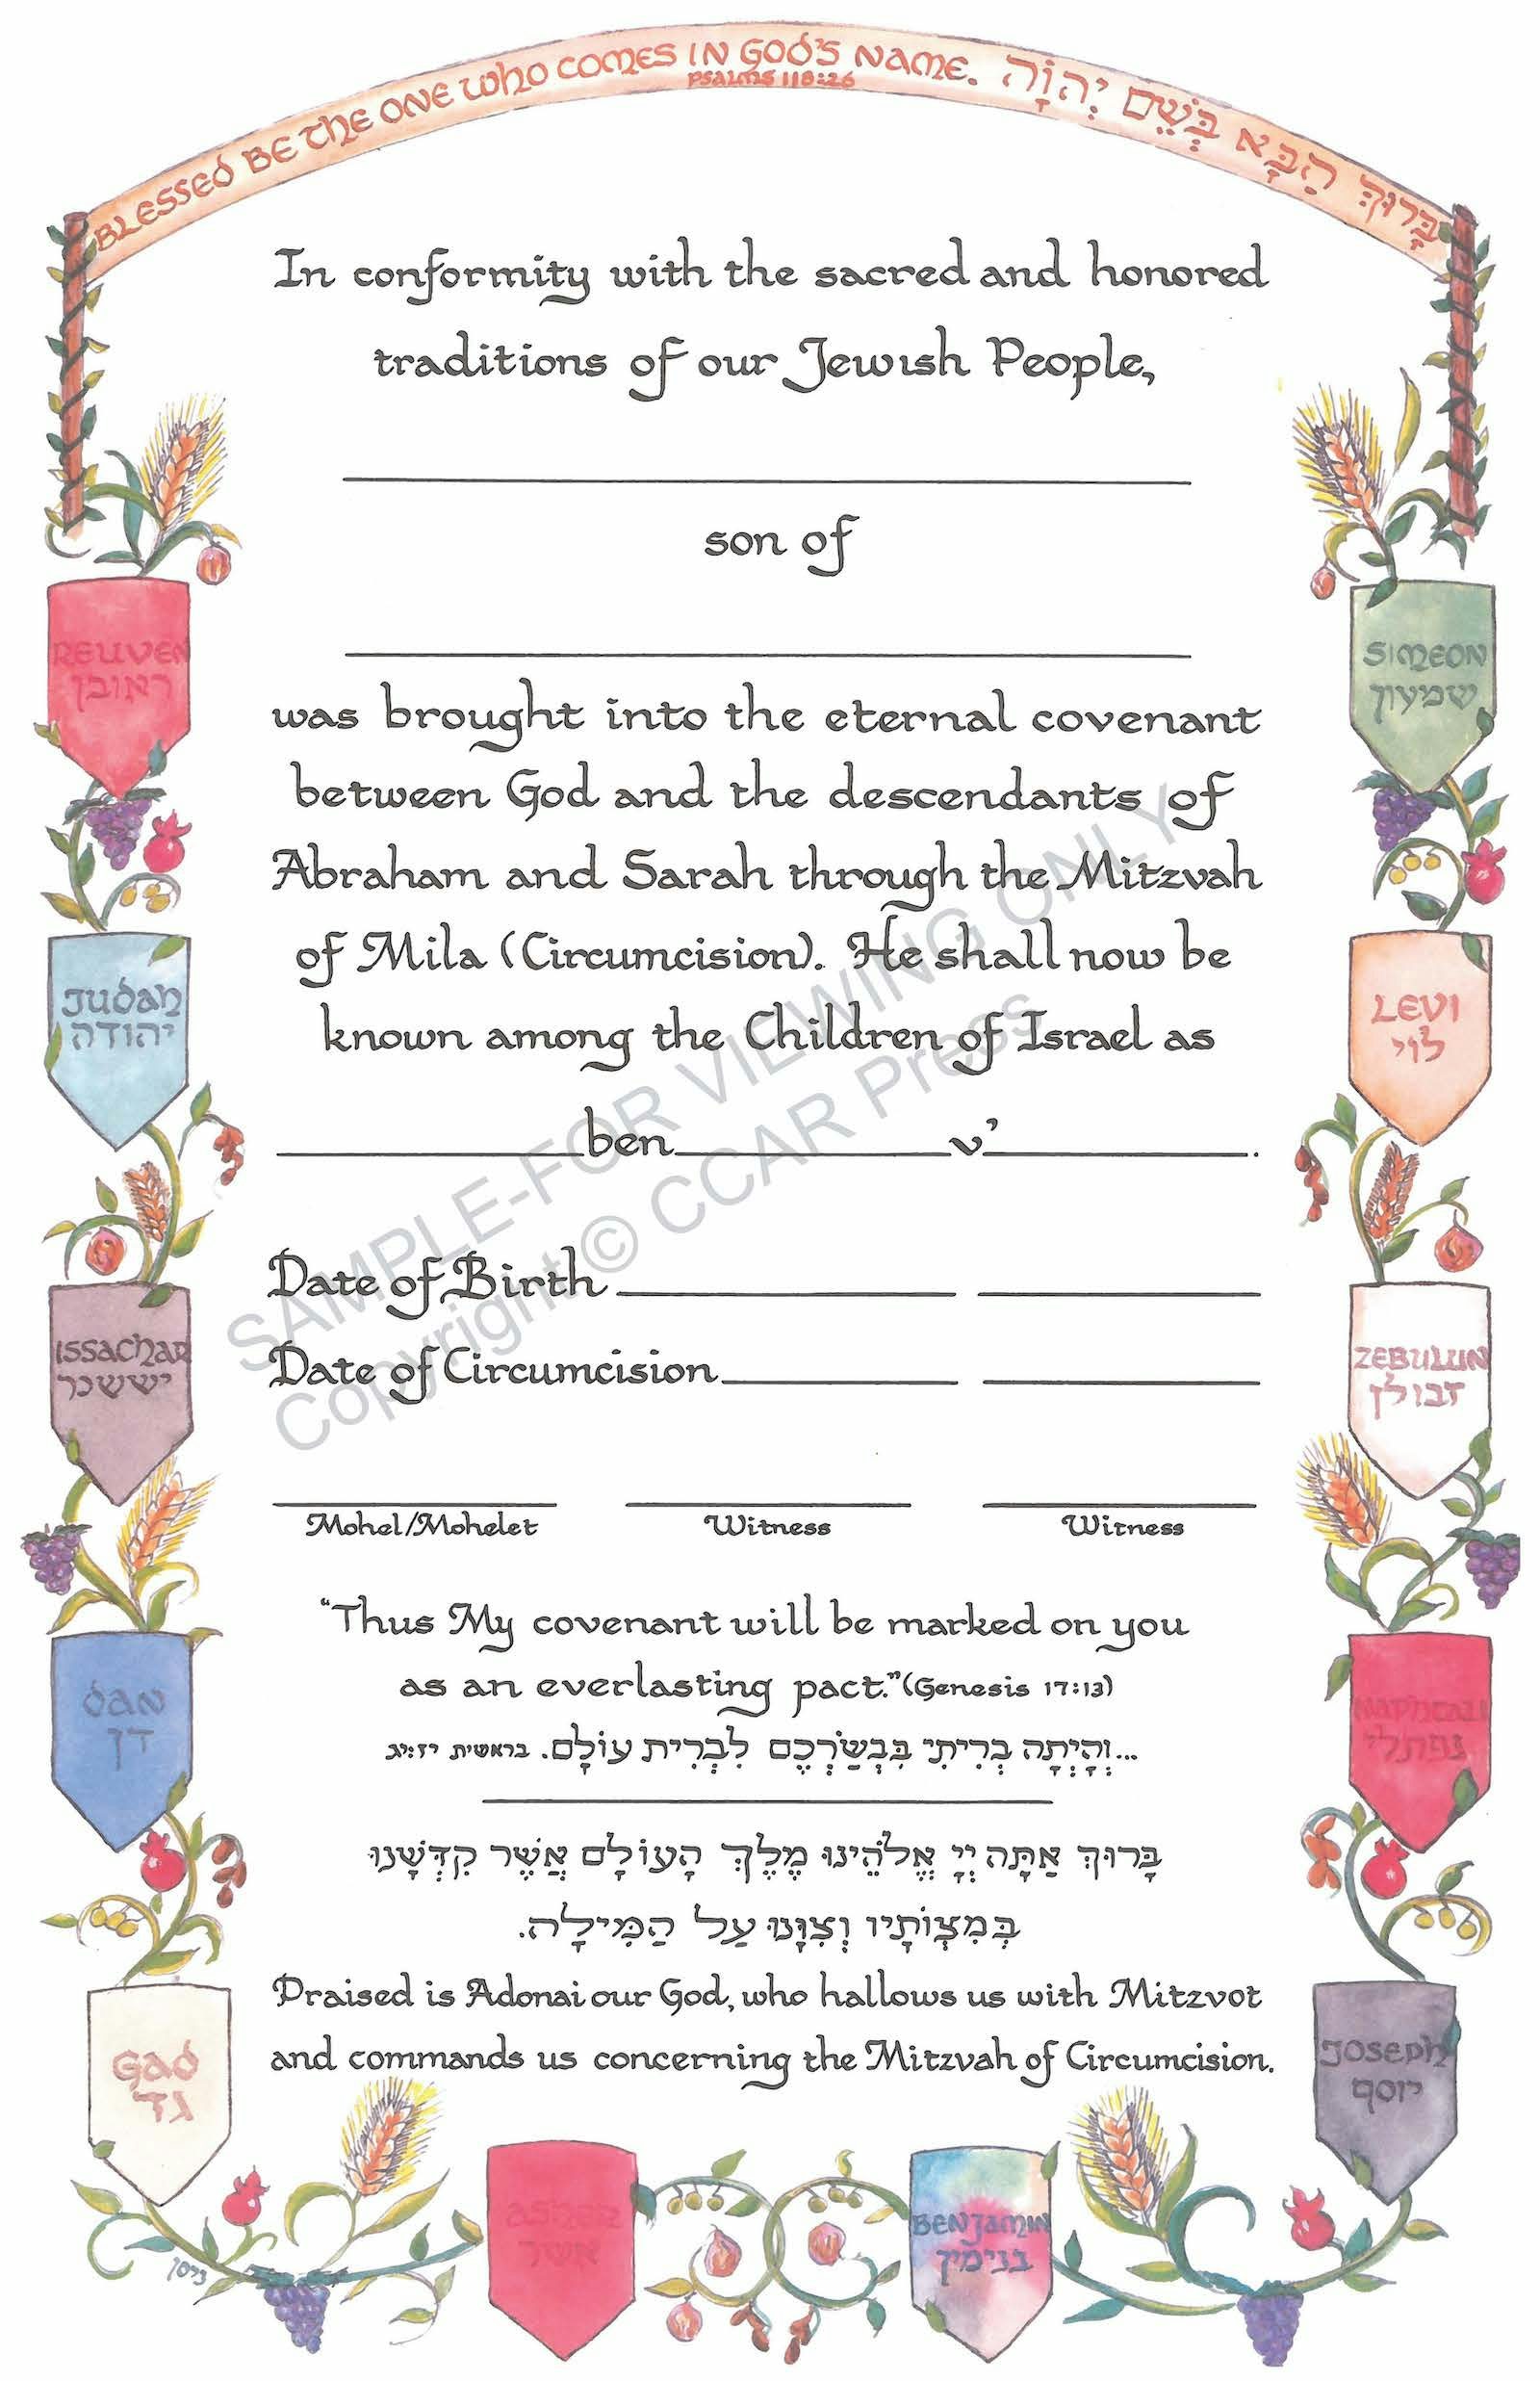 BLESSED BE THE ONE WHO COMES IN GOD'S NAME. בָּרוּךְ הַבָּא בְּשֵׁם יְהוָֹה
PSALMS 118:26
In conformity with the sacred and honored
traditions of our Jewish People,
son of
was brought into the eternal covenant
between God and the descendants of
Abraham and Sarah through the Mitzvah
of Mila (Circumcision). He shall now be
known among the Children of Israel as
ben v'.
Date of Birth
Date of Circumcision
Mohel/Mohelet Witness Witness
"Thus My covenant will be marked on you
as an everlasting pact."(Genesis 17:13)
...וְהָיְתָה בְרִיתִי בִּבְשַׂרְכֶם לִבְרִית עוֹלָם. בראשית יז:יג
בָּרוּךְ אַתָּה יְיָ אֱלֹהֵינוּ מֶלֶךְ הָעוֹלָם אֲשֶׁר קִדְּשָׁנוּ
בְּמִצְוֹתָיו וְצִוָּנוּ עַל הַמִּילָה.
Praised is Adonai our God, who hallows us with Mitzvot
and commands us concerning the Mitzvah of Circumcision.
REUVEN
ראובן
JUDAH
יהודה
ISSACHAR
יששכר
DAN
דן
GAD
גד
ASHER
אשר
BENJAMIN
בנימין
JOSEPH
יוסף
NAPHTALI
נפתלי
ZEBULUN
זבולן
LEVI
לוי
SIMEON
שמעון
SAMPLE-FOR VIEWING ONLY
Copyright © CCAR Press